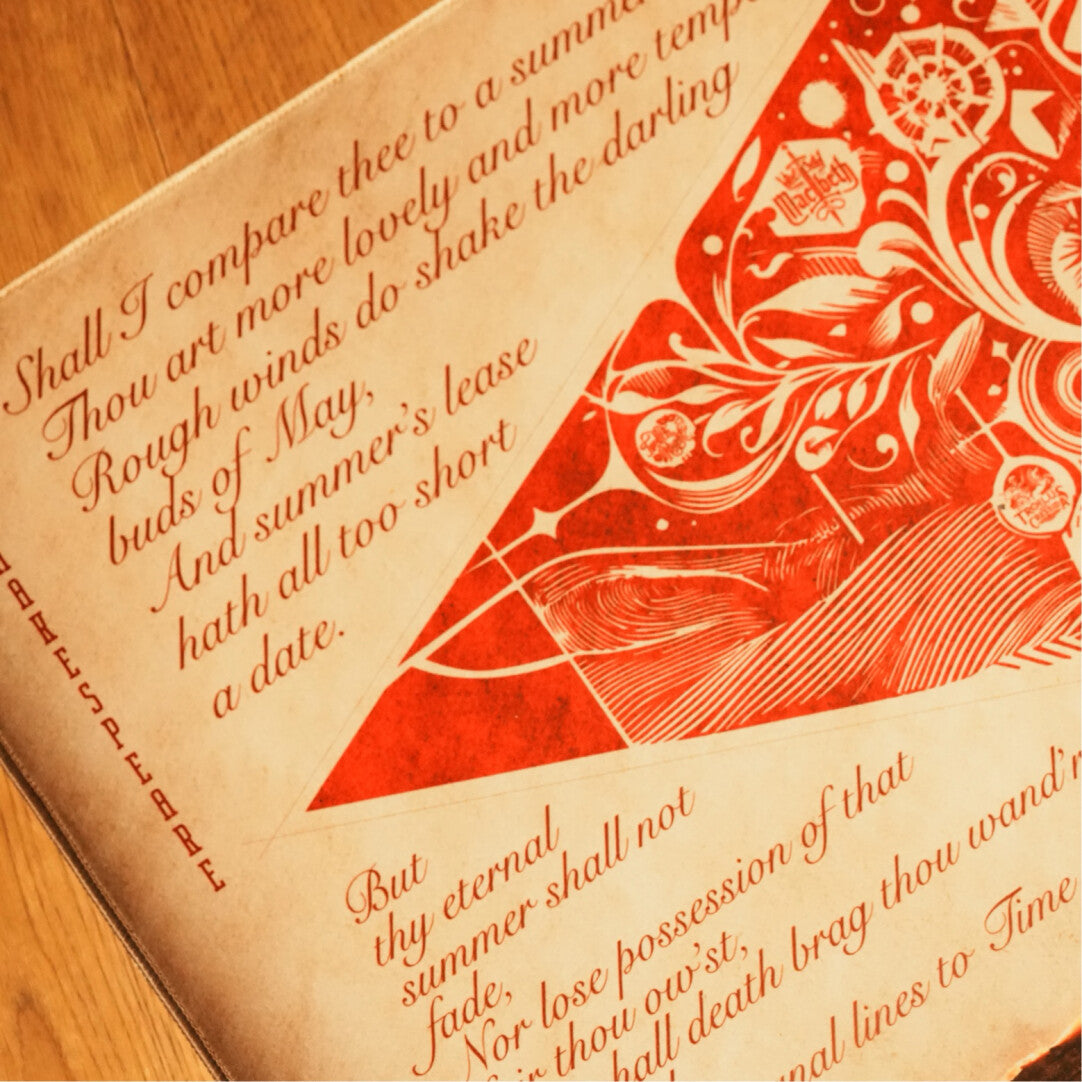 Shall I compare thee to a summe
Thou art more lovely and more temp
Rough winds do shake the darling
buds of May,
And summer's lease
hath all too short
a date.
But
thy eternal
summer shall not
fade,
Nor lose possession of that
ir thou ow'st,
hall death brag thou wand'r
nal lines to Time
AKESPEARE
Macbeth